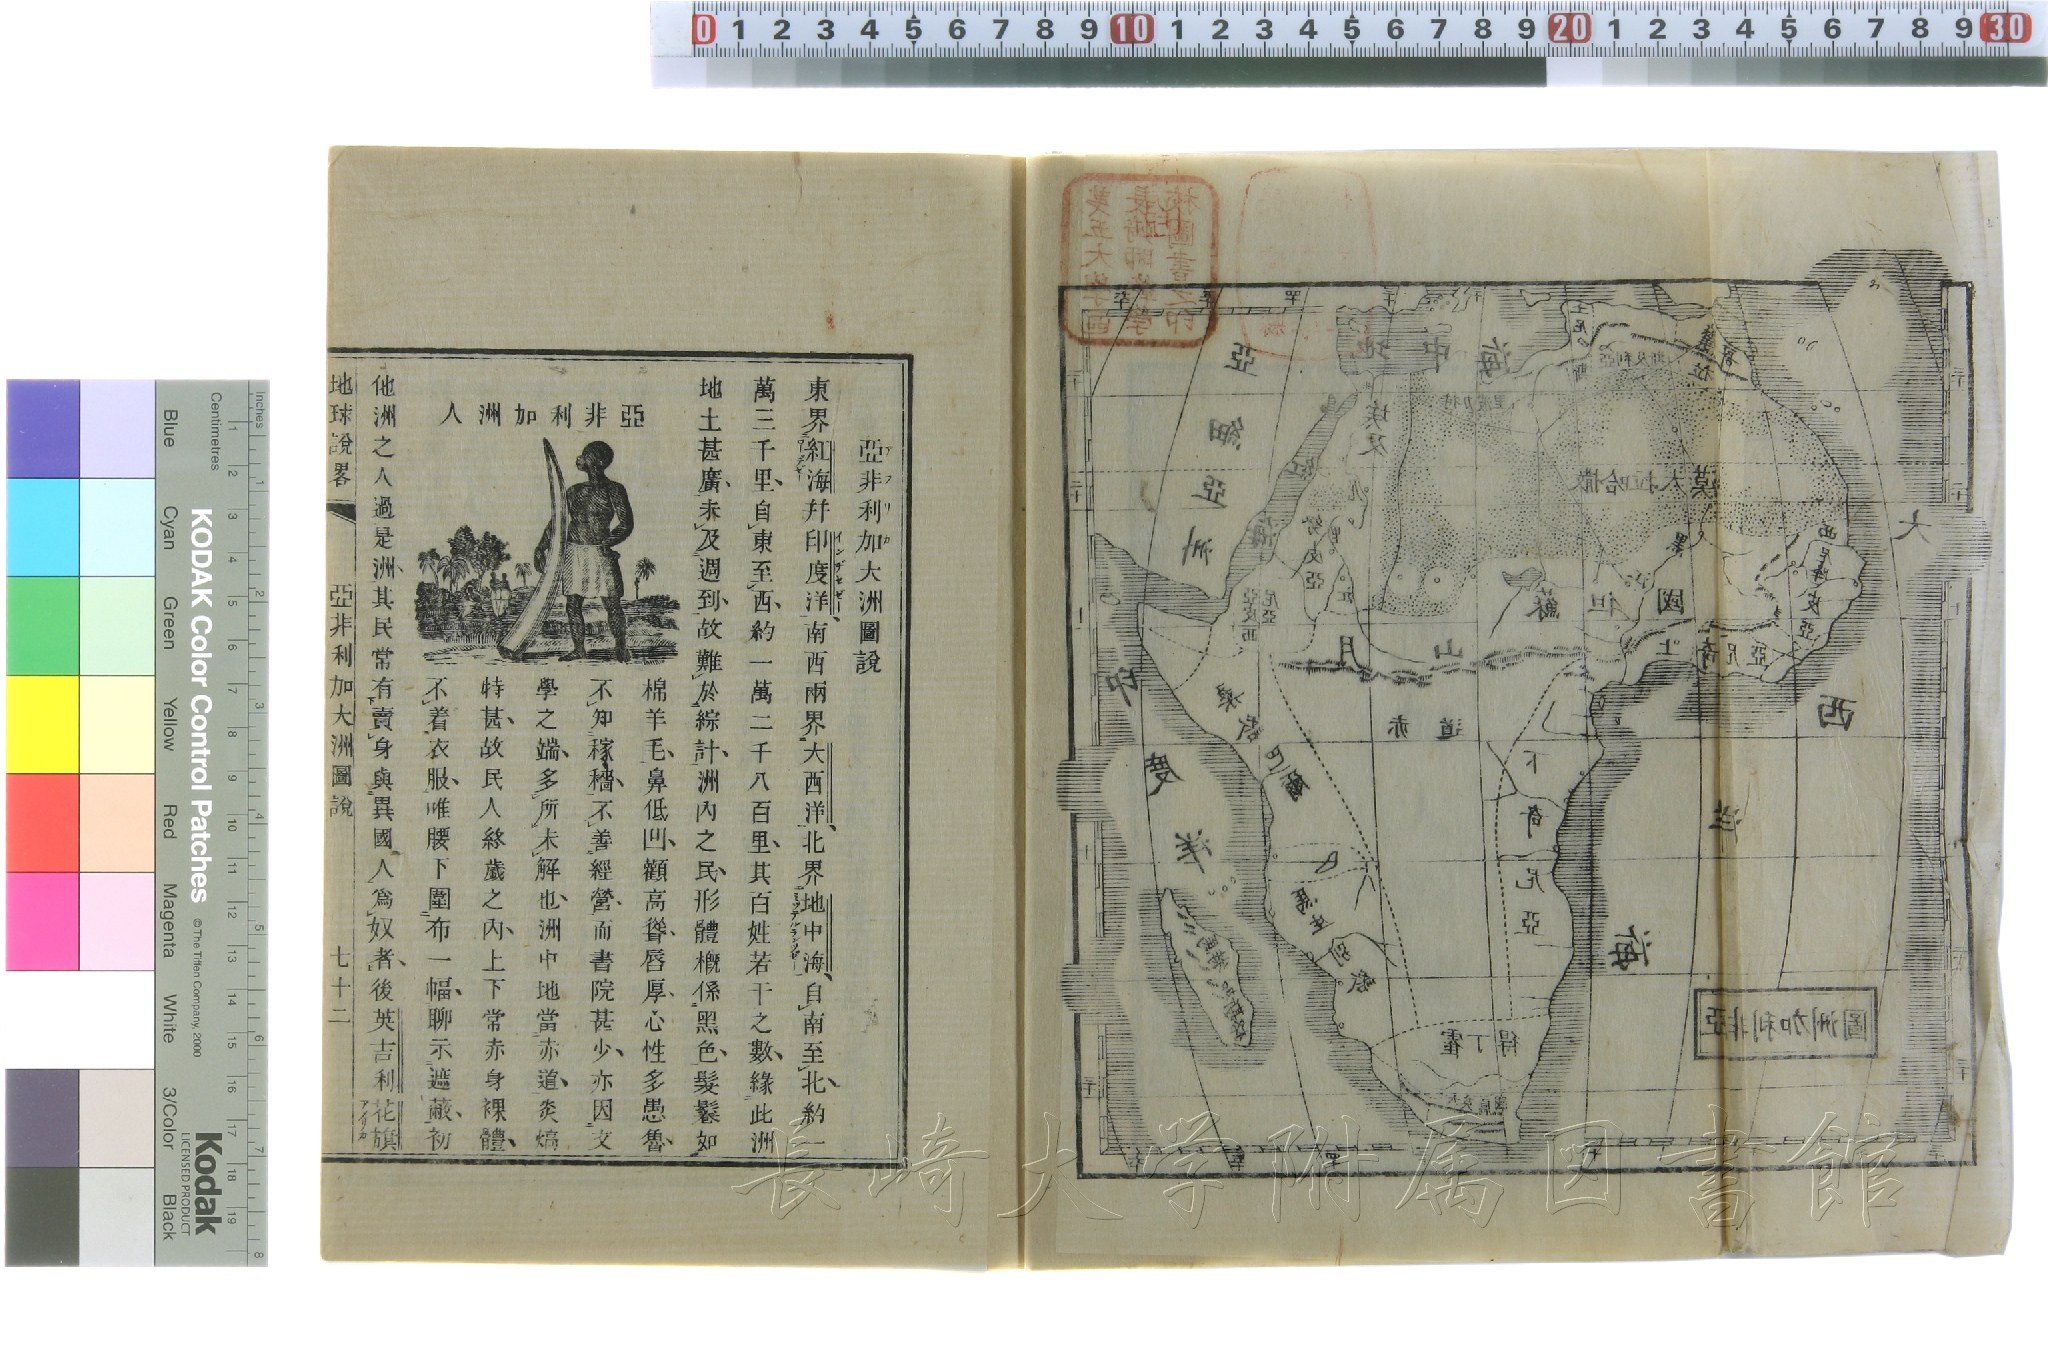 亞非利加大洲圖說
東界紅海幷印度洋南西兩界大西洋北界地中海自南至北約一
萬三千里自東至西約一萬二千八百里其百姓若干之數緣此洲
地土甚廣未及週到故難於綜計洲內之民形體槪係黑色髮鬈如
棉羊毛鼻低凹顴高聳唇厚心性多愚魯
不知稼穡不善經營而書院甚少亦因文
學之端多所未解也洲中地當赤道炎熇
特甚故民人終歲之內上下常赤身裸體
不着衣服唯腰下圍布一幅聊示遮蔽初
亞非利加洲人
他洲之人過是洲其民常有賣身與異國人爲奴者後英吉利花旗
地球說畧
亞非利加大洲圖說
七十二
亞非利加洲圖
亞細亞洲
地中海
紅海
埃及
撒哈拉大漠
蘇但
國
月山
赤道
下奇尼亞
上奇尼亞
印度洋
大西洋海
霍丁得
長崎大学附属図書館
0 1 2 3 4 5 6 7 8 9 10 1 2 3 4 5 6 7 8 9 20 1 2 3 4 5 6 7 8 9 30
KODAK Color Control Patches
© The Tiffen Company, 2000
Kodak
LICENSED PRODUCT
Inches
Centimetres
1 2 3 4 5 6 7 8
1 2 3 4 5 6 7 8 9 10 11 12 13 14 15 16 17 18 19
Blue
Cyan
Green
Yellow
Red
Magenta
White
3/Color
Black